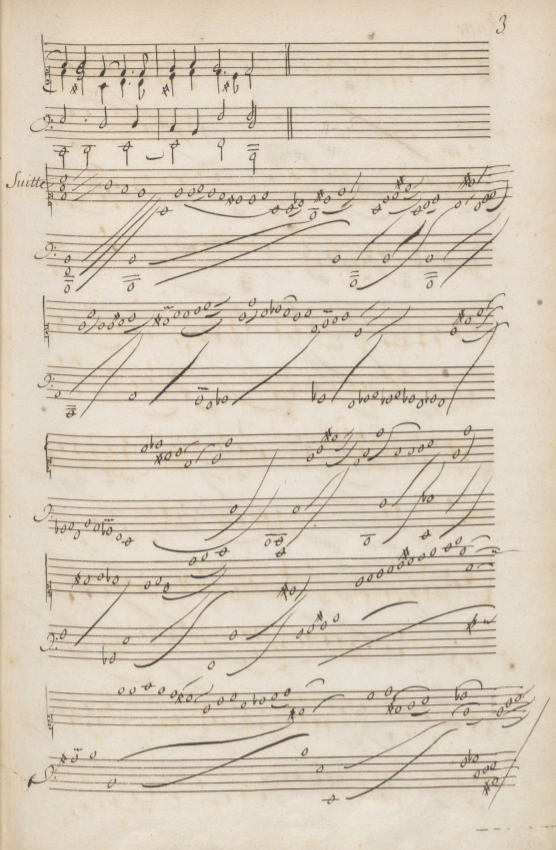 3
Suitte